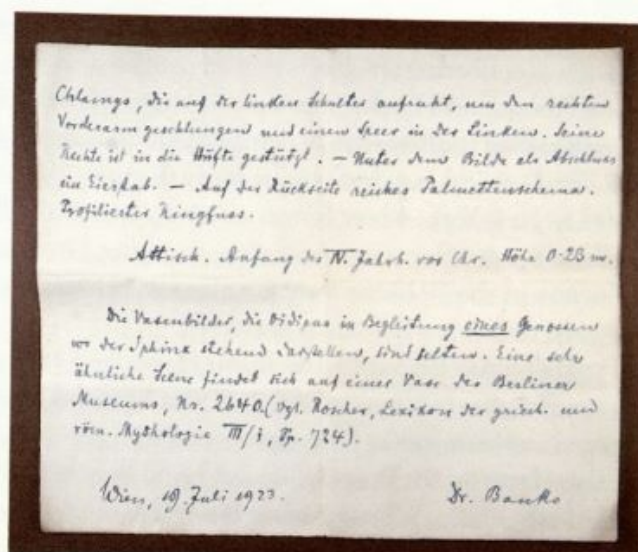 Chlamys, die auf der linken Schulter aufruht, um den rechten
Vorderarm geschlungen und einen Speer in der Linken. Seine
Rechte ist in die Hüfte gestützt. — Unter dem Bilde als Abschluss
ein Eierstab. — Auf der Rückseite reiches Palmettenschema.
Profilierter Ringfuss.
Attisch. Anfang des IV. Jahrh. vor Chr. Höhe 0·23 m.
Die Vasenbilder, die Ödipus in Begleitung eines Genossen
vor der Sphinx stehend darstellen, sind selten. Eine sehr
ähnliche Scene findet sich auf einer Vase des Berliner
Museums, Nr. 2640. (vgl. Roscher, Lexikon der griech. und
röm. Mythologie III/1, Sp. 724).
Wien, 19. Juli 1923. Dr. Banko